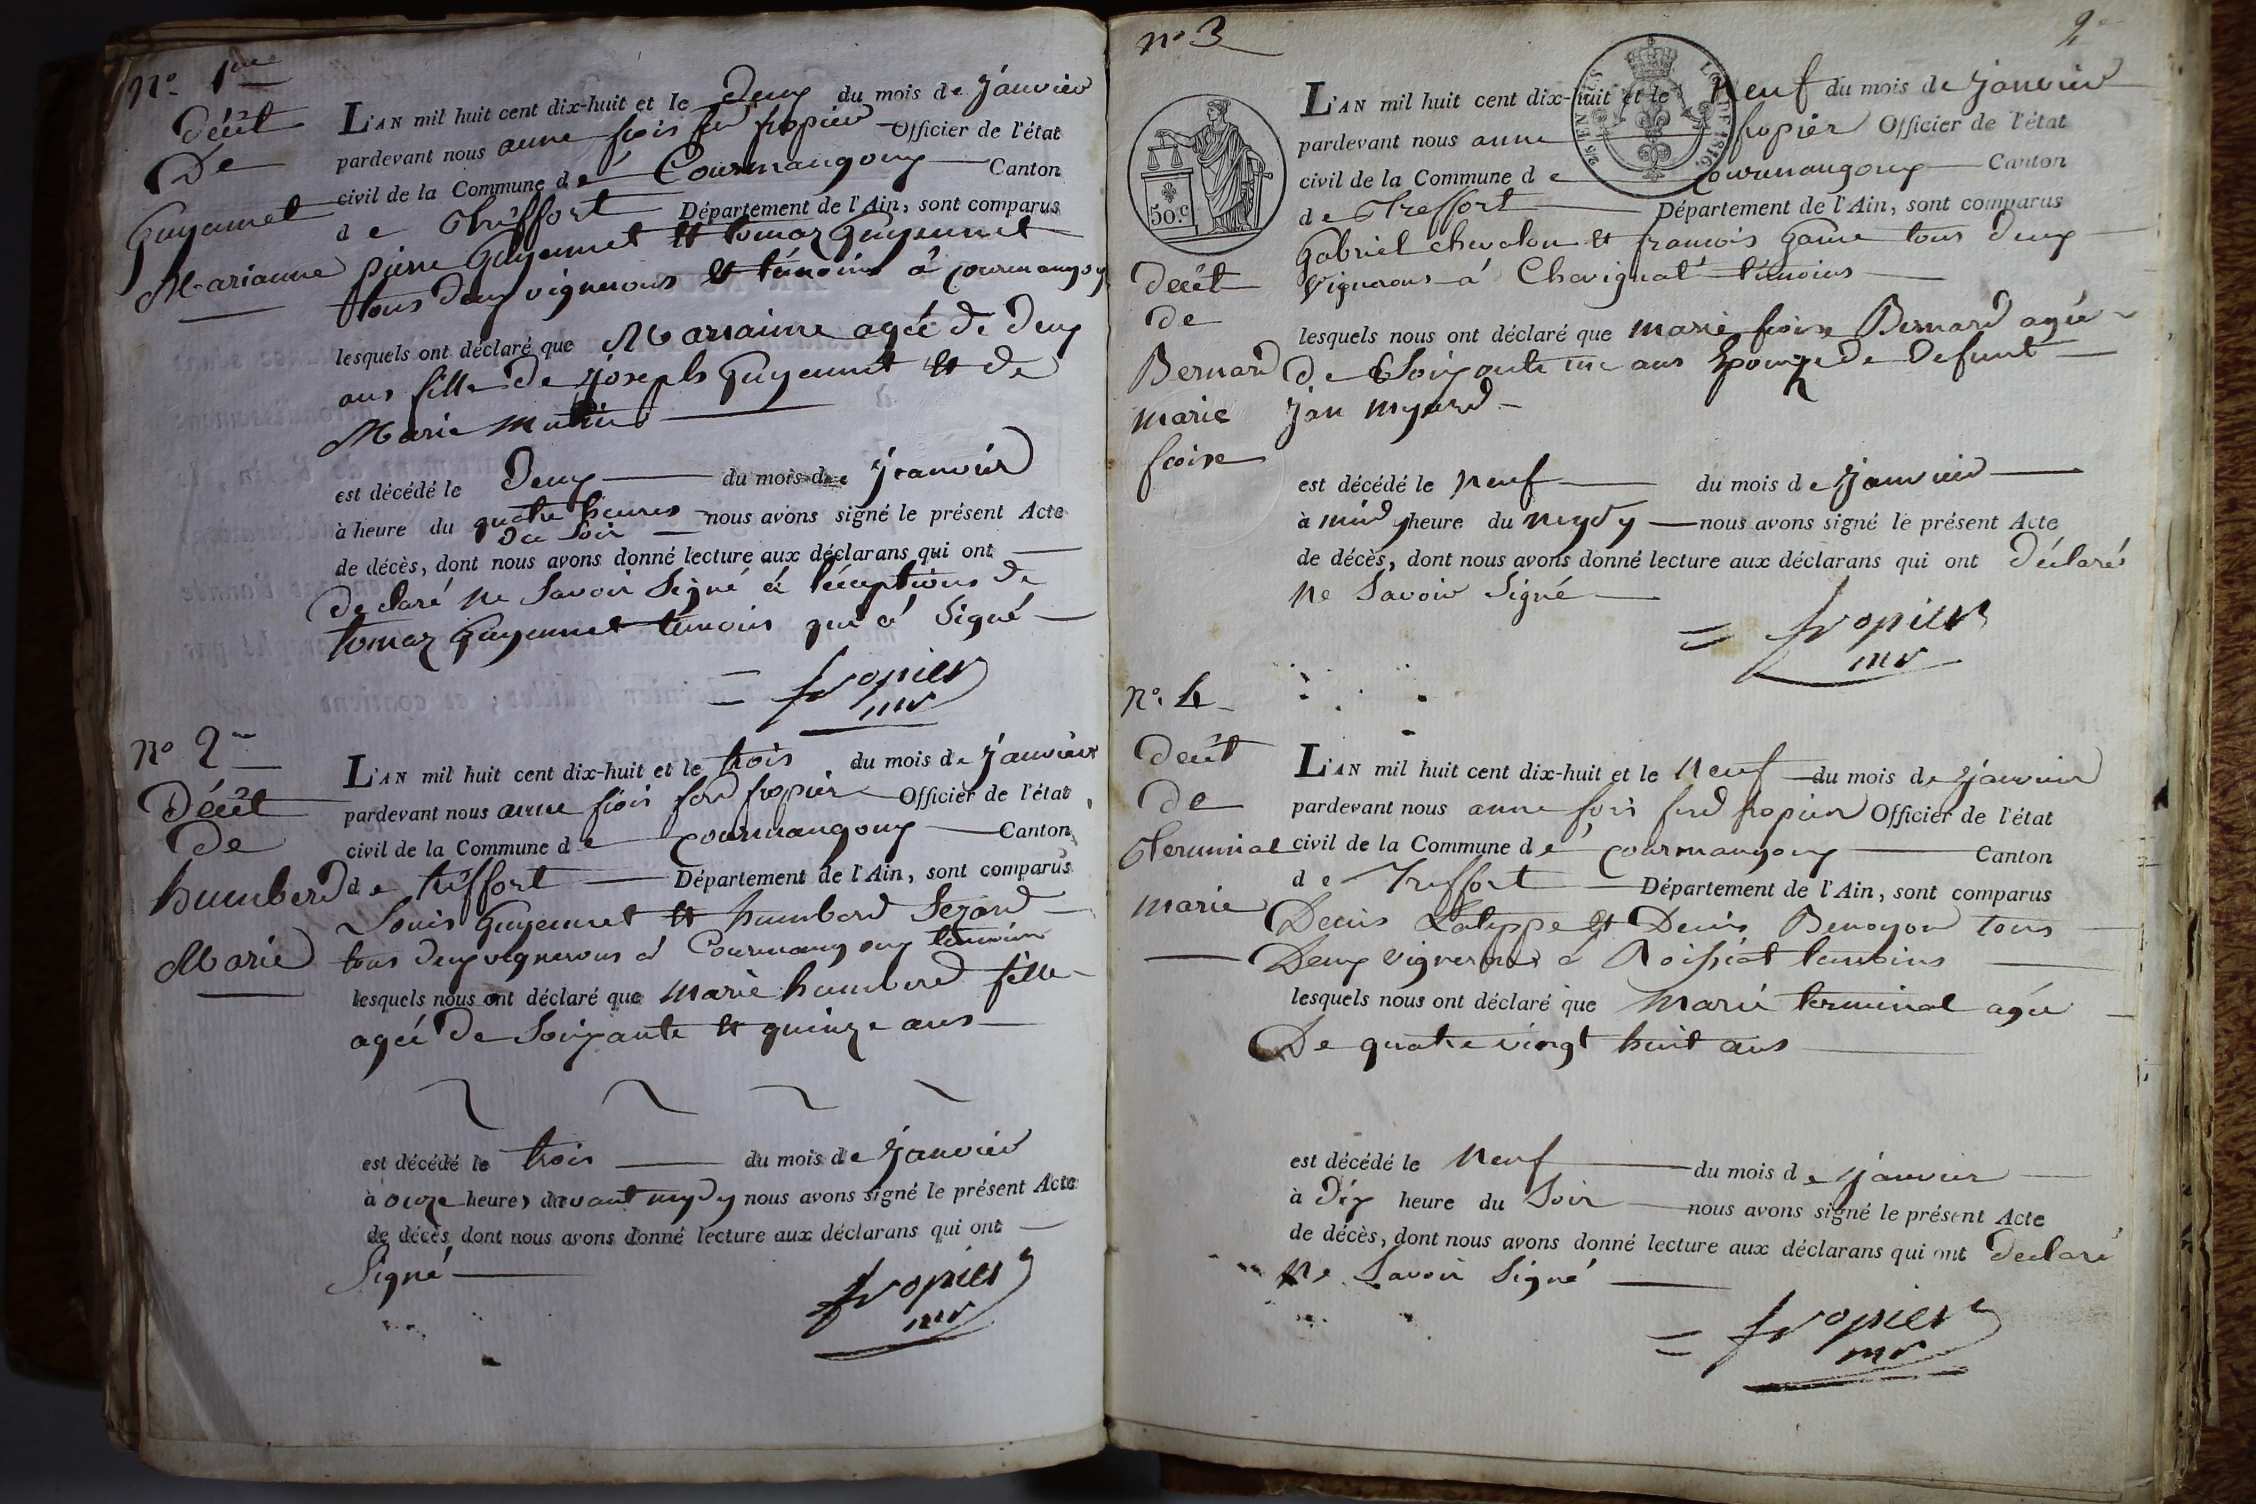 N° 1er
décêt
De
Guyennet
Marianne
L'AN mil huit cent dix-huit et le Deux du mois de Janvier
pardevant nous anne frois fnd fropier Officier de l'état
civil de la Commune de Courmangoux Canton
de Treffort Département de l'Ain, sont comparus
pierre Guyennet et tomaz Guyennet
tous deux vignerons et témoins à courmangoux
lesquels ont déclaré que Mariainne agée de deux
ans fille de Joseph Guyennet et de
Marie
est décédé le Deux du mois de Janvier
à heure du quatre heures nous avons signé le présent Acte
Du Soir
de décès, dont nous avons donné lecture aux déclarans qui ont
declaré ne Savoir Signé à léxceptions de
tomaz Guyennet temoins qui a Signé
fropier
mr
N° 2me
Décêt
De
humberd
Marie
L'AN mil huit cent dix-huit et le trois du mois de Janvier
pardevant nous anne frois fnd fropier Officier de l'état
civil de la Commune de courmangoux Canton
de treffort Département de l'Ain, sont comparus
Louis Guyennet et humberd Sezard
tous deux vignerons à Courmangoux temoins
lesquels nous ont déclaré que Marie humberd fille
agée de Soixante et quinze ans
est décédé le trois du mois de Janvier
à onze heures davant mydy nous avons signé le présent Acte
de décès dont nous avons donné lecture aux déclarans qui ont
Signé
fropier
mr
n° 3
2e
25 EN SUS
LOI DE 1816.
50.c
décêt
de
Bernard
marie
froise
L'AN mil huit cent dix-huit et le Neuf du mois de Janvier
pardevant nous anne fropier Officier de l'état
civil de la Commune de courmangoux Canton
de Treffort Département de l'Ain, sont comparus
Gabriel chevelon et francois Game tous deux
vignerons à Chevignat témoins
lesquels nous ont déclaré que marie froise Bernard agée
de Soixante un ans Epouze de Defunt
Jan myard
est décédé le Neuf du mois de Janvier
à midy heure du mydy nous avons signé le présent Acte
de décès, dont nous avons donné lecture aux déclarans qui ont déclaré
ne Savoir Signé
fropier
mr
n° 4
decêt
De
terminal
marie
L'AN mil huit cent dix-huit et le Neuf du mois de Janvier
pardevant nous anne frois fnd fropier Officier de l'état
civil de la Commune de courmangoux Canton
de Treffort Département de l'Ain, sont comparus
Denis Lateppe et Denis Benoyon tous
Deux vignerons à Roissiat temoins
lesquels nous ont déclaré que Marie terminal agée
De quatre vingt huit ans
est décédé le Neuf du mois de Janvier
à dix heure du Soir nous avons signé le présent Acte
de décès, dont nous avons donné lecture aux déclarans qui ont declaré
ne Savoir Signé
fropier
mr